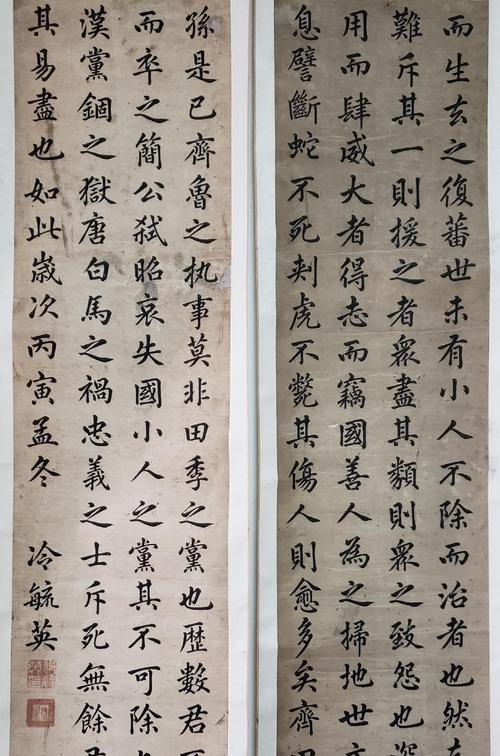 而生去之復蕃世未有小人不除而治者也然
難斥其一則援之者眾盡其類則眾之致怨也
用而肆威大者得志而竊國善人為之掃地世
息譬斷蛇不死刺虎不斃其傷人則愈多矣齊
孫是已齊魯之执事莫非田季之黨也歷數君
而卒之簡公弑昭哀失國小人之黨其不可除
漢黨錮之獄唐白馬之禍忠義之士斥死無餘
其易盡也如此嵗次丙寅孟冬 冷毓英